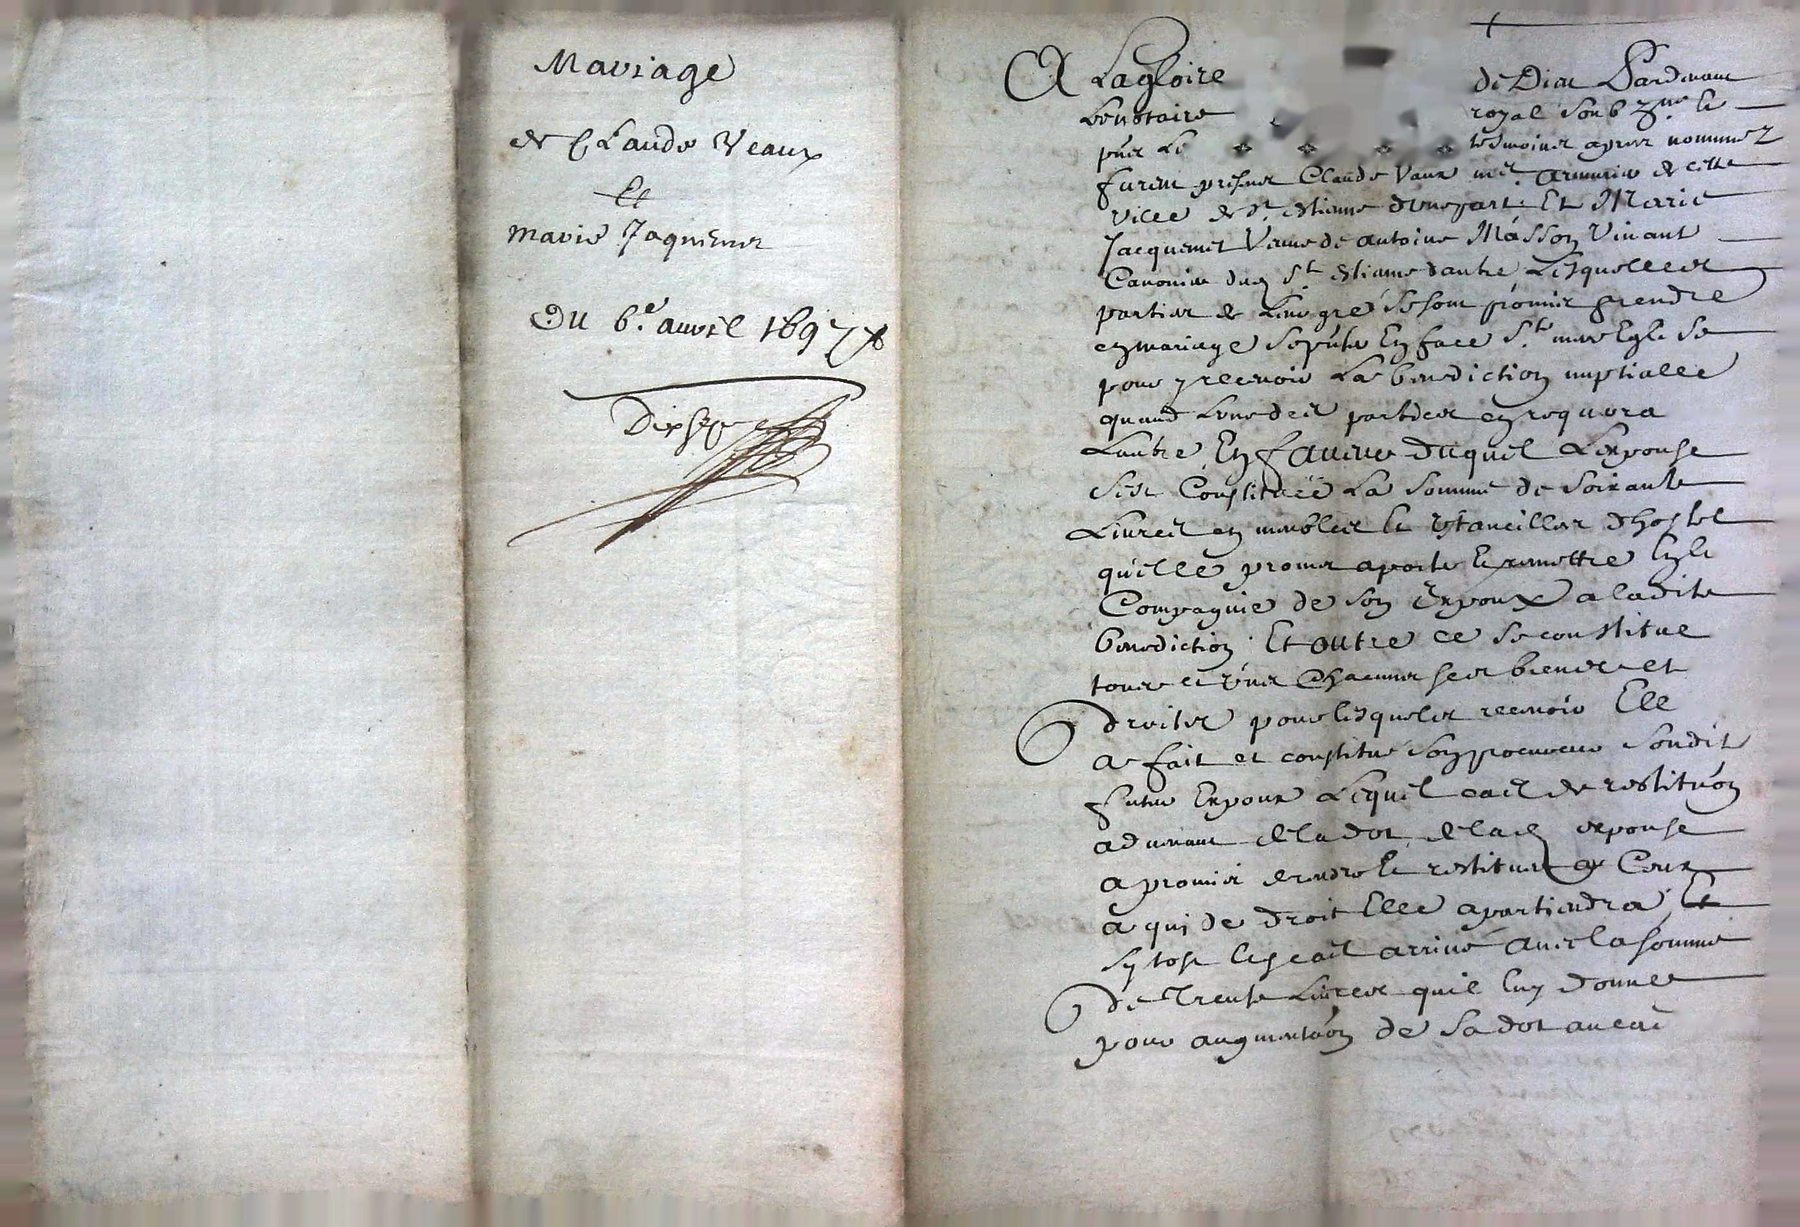 Mariage
de Claude Veaux
Et
Marie Jaquemer
Du 6.e auvril 1697
A La gloire de Dieu Pardeuant
Le notaire royal soubz.ne Le
pnts Le tesmoins apres nommez
furent presnes Claude Vaux me. armurier de cette
ville de St. Estienne dune part. Et Marie
Jacquemet Veuue de Antoine Masson Viuant
Canonier dud St. Estienne dautre Lesquelles
parties de Leur gre se sont promis prendre
en mariage se pnter En face Ste. mere Eglise
pour y receuoir La benediction nuptialle
quand Lune des parties en requera
Lautre En faueur duquel Lexpouse
sest Constituée La somme de soixante
Liures en meubles et ustancilles dhostel
quelle promet aporter et remettre En la
Compagnie de son Expoux a ladite
benediction Et outre ce se constitue
tous et uns Chacuns ses biens et
droites pour lesqueles receuoir Elle
a fait et constitué son procureur sondit
futur Expoux Lequel cas de restituon
aduenant de la dot de lad expouse
a promis de rendre et restituer
a qui de droit Elle apartiendra Et
sytost le cas arriué auec la somme
de Trente Liures quil luy donne
pour augmentaon de sa dot au cas